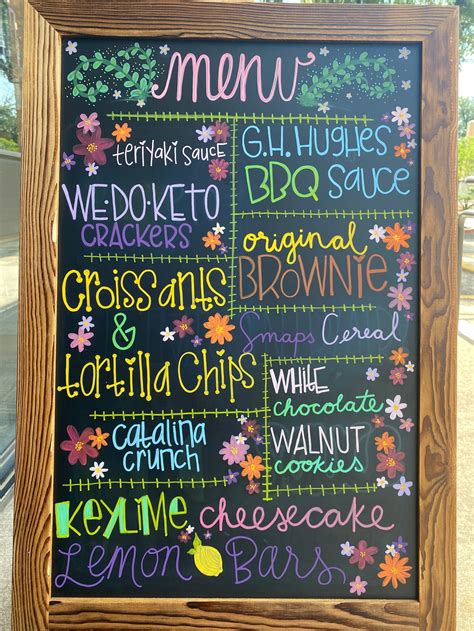 menu
teriyaki sauce
WE·DO·KETO
CRACKERS
croissants
&
tortilla chips
catalina
crunch
G.H. HUGHES
BBQ SAUCE
original
BROWNIE
Smaps Cereal
WHITE
chocolate
WALNUT
cookies
KEYLIME cheesecake
Lemon Bars